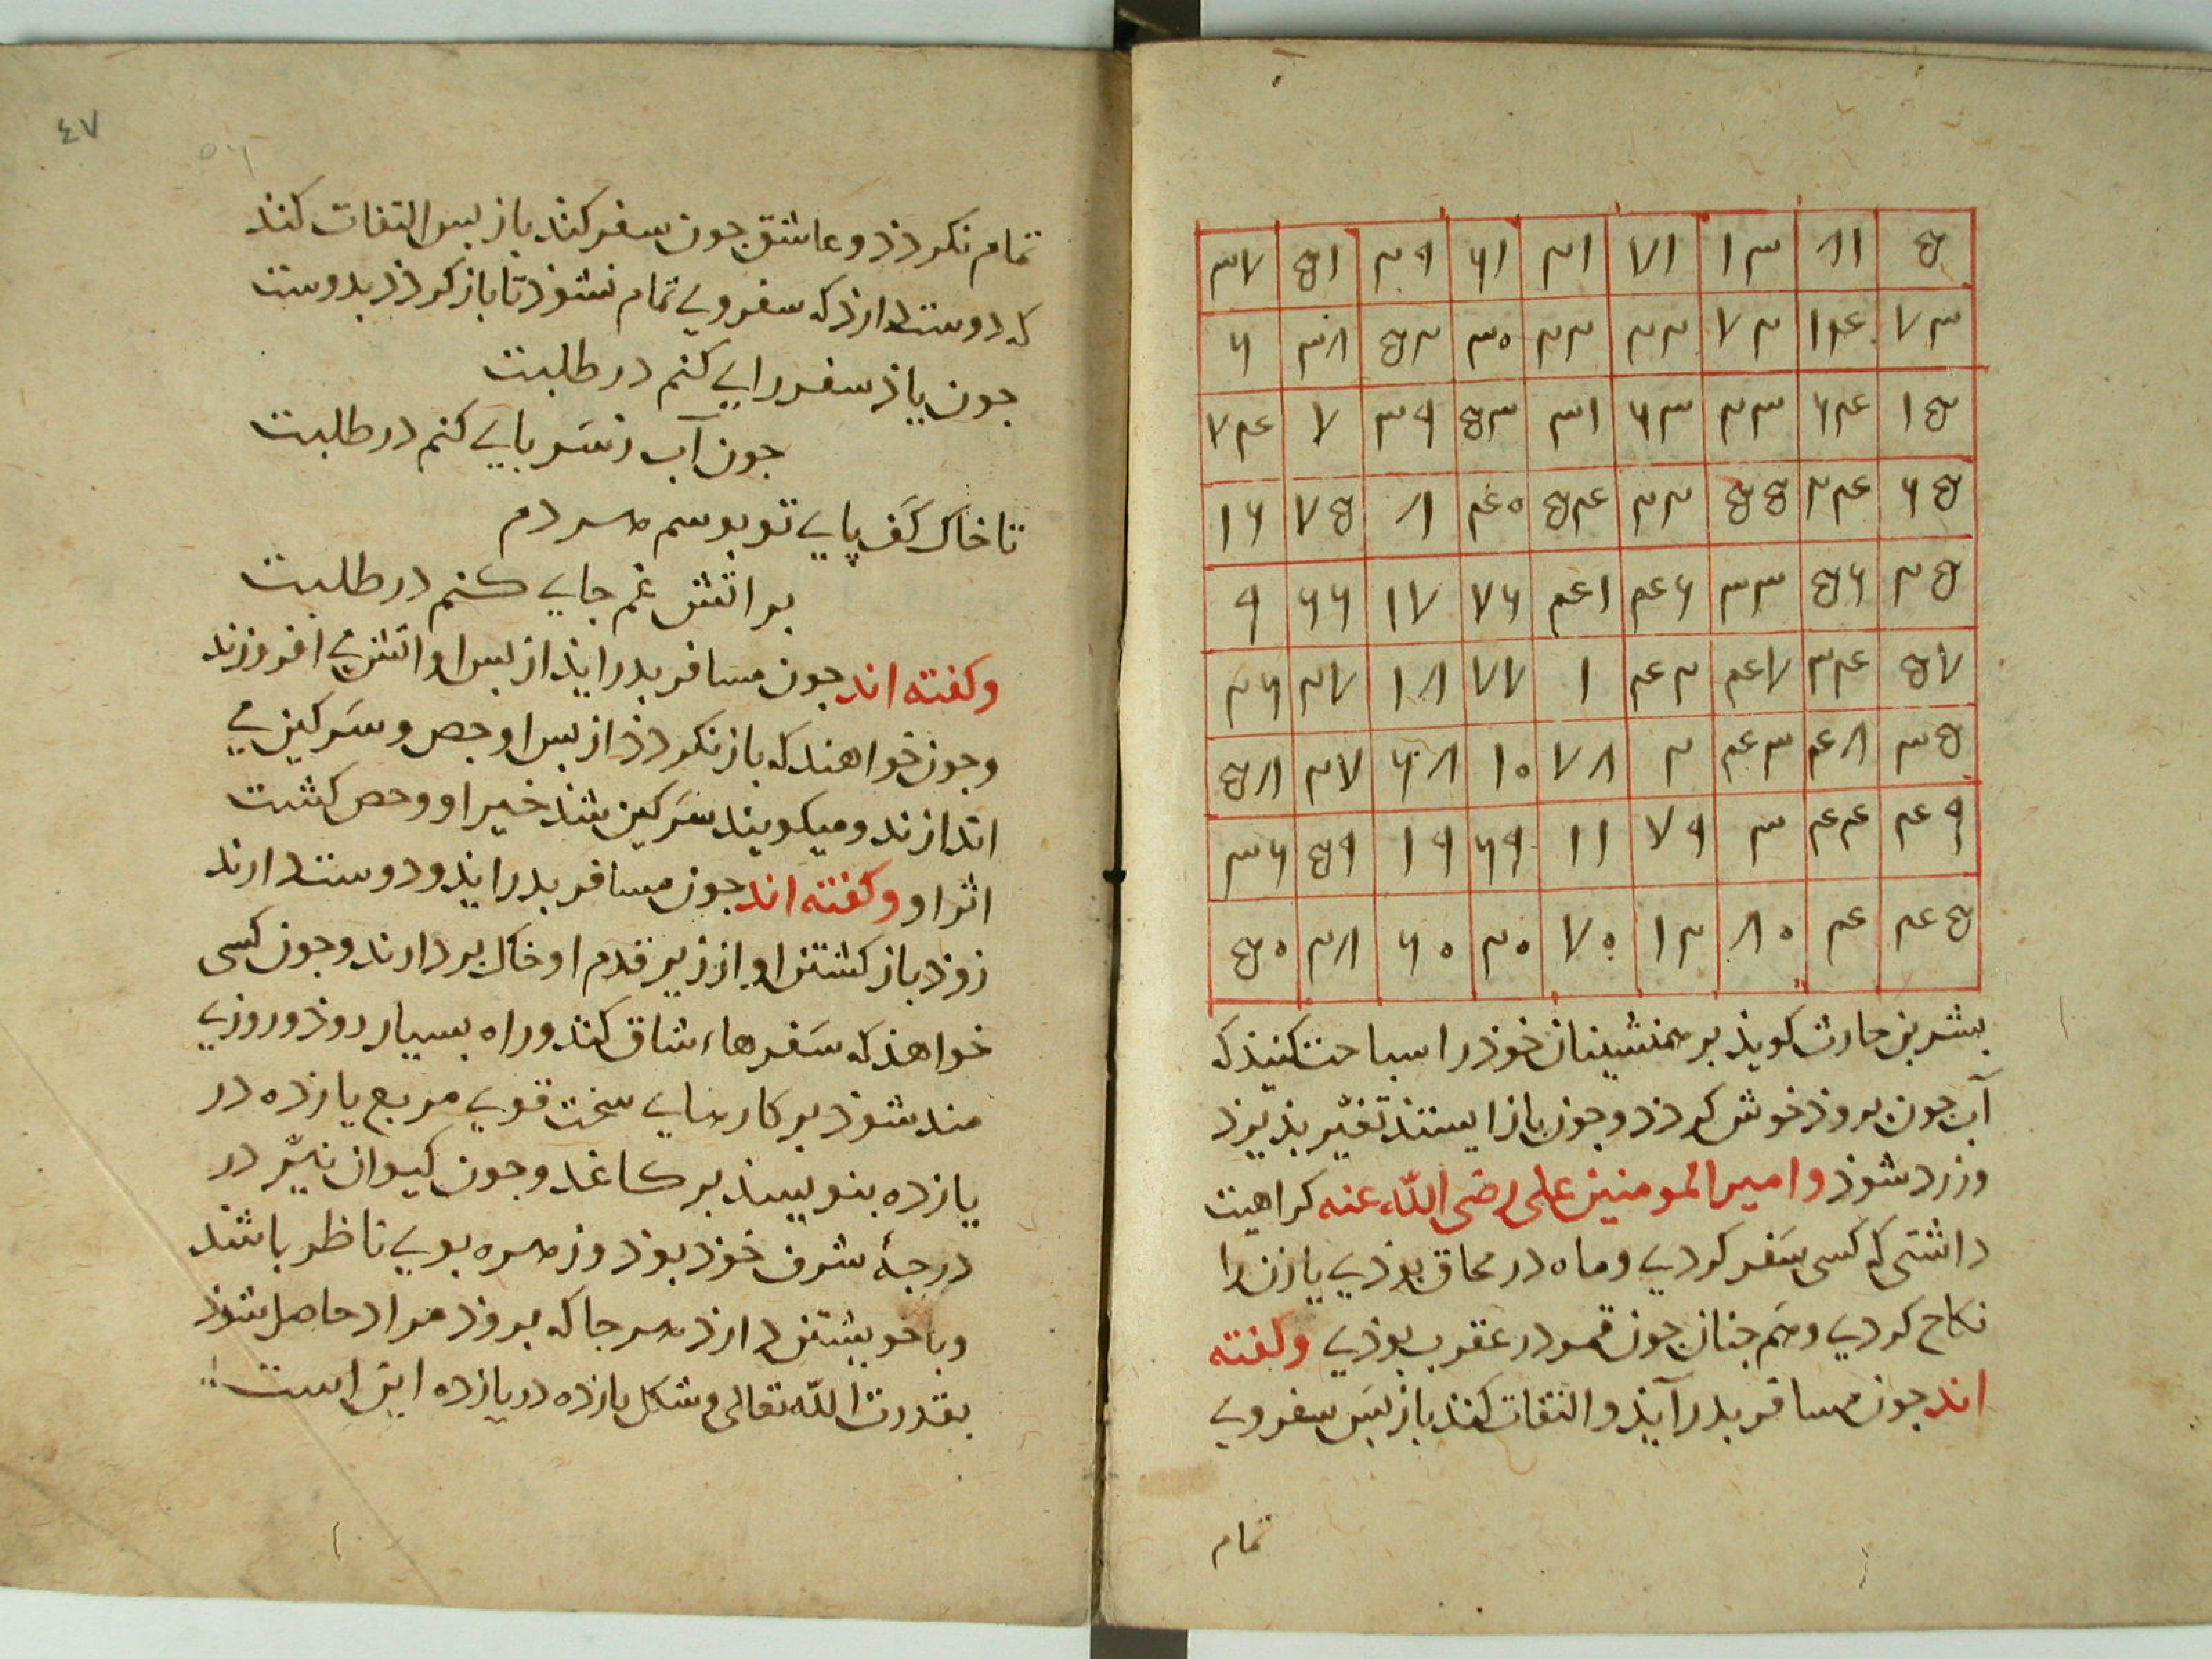 ۳۷ ۵۱ ۲۹ ۶۱ ۲۱ ۷۱ ۱۳ ۱۸ ۵
۶ ۳۸ ۵۲ ۳۰ ۲۲ ۷۳ ۱۴ ۷۳
۷۴ ۷ ۳۹ ۵۳ ۳۱ ۶۳ ۲۳ ۶۴ ۱۵
۱۶ ۷۵ ۸ ۴۰ ۵۴ ۳۲ ۵۵ ۲۴ ۶۵
۹ ۶۶ ۱۷ ۷۶ ۴۱ ۴۶ ۳۳ ۵۶ ۲۵
۲۶ ۲۷ ۱۸ ۷۷ ۱ ۴۲ ۴۷ ۳۴ ۵۷
۵۸ ۲۷ ۶۸ ۱۰ ۷۸ ۲ ۴۳ ۴۸ ۳۵
۳۶ ۵۹ ۱۹ ۶۹ ۱۱ ۷۹ ۳ ۴۴ ۴۹
۵۰ ۲۸ ۶۰ ۲۰ ۷۰ ۱۲ ۸۰ ۴ ۴۵
بشر بن حارث کویذ بر همنشینان خوذ را سباحت کنیذ که
آب جون بروذ خوش کردذ و جون باز ایستذ تغیّر بذیرذ
و زرد شوذ و امیر المومنین علی رضی الله عنه کراهیت
داشتی که کسی سَفر کردی و ماه در محاق بوذی یا زن را
نکاح کردی و هَم جنان جون قمر در عقرب بوذی و کفته
اند جون مسافر بدر آیذ و التفات کند باز بَس سفر وی
تمام
٤٧
تمام نکردذ و عاشق جون سفر کند باز بس التفات کند
که دوست دارذ که سفر وی تمام نشوذ تا باز کردذ بدوست
جون باذ سفر رایی کنم در طلبت
جون آب زسَر بایی کنم در طلبت
تا خاک کف پایی تو بوسم هر دم
بر اتش غم جایی کنم در طلبت
و کفته اند جون مسافر بدر ایذ از بس او اتش می افروزند
و جون خواهند که باز نکردذ از بس او جص و سَرکین می
اندازند و میکویند سَرکین شد خیر او و حص کشت
اثر او و کفته اند جون مسافر بدر ایذ و دوست دارند
زوذ باز کشتن او از زیر قدم او خاک بردارند و جون کسی
خواهذ که سَفرهاء شاق کند و راه بسیار روذ و روزی
مند شوذ بر کارهایی سخت قوی مربع یازده در
یازده بنویسند بر کاغذ و جون کیوان نیّر در
درجهٔ شرف خوذ بوذ و زهره بوی ناظر باشد
و با خویشتن دارذ هر جا که بروذ مراد حاصل شوذ
بقدرت الله تعالی و شکل یازده در یازده این است